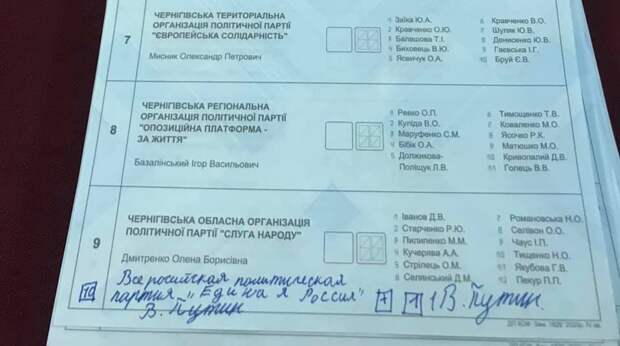 7
ЧЕРНІГІВСЬКА ТЕРИТОРІАЛЬНА
ОРГАНІЗАЦІЯ ПОЛІТИЧНОЇ ПАРТІЇ
"ЄВРОПЕЙСЬКА СОЛІДАРНІСТЬ"
Мисник Олександр Петрович
1 Заїка Ю.А.
2 Кравченко О.Ю.
3 Балашова Т.І.
4 Биховець В.Ю.
5 Ясвичук О.А.
6 Кравченко В.О.
7 Шуляк Ю.В.
8 Денисенко Ю.В.
9 Гаєвська І.Г.
10 Бруй Є.В.
8
ЧЕРНІГІВСЬКА РЕГІОНАЛЬНА
ОРГАНІЗАЦІЯ ПОЛІТИЧНОЇ ПАРТІЇ
"ОПОЗИЦІЙНА ПЛАТФОРМА -
ЗА ЖИТТЯ"
Базалінський Ігор Васильович
1 Ревко О.П.
2 Куліда В.О.
3 Маруфенко С.М.
4 Бібік О.А.
5 Должикова-
Поліщук Л.В.
6 Тимощенко Т.В.
7 Коваленко М.О.
8 Ясочко Р.К.
9 Матюшко М.О.
10 Кривопалий Д.В.
11 Голець В.В.
9
ЧЕРНІГІВСЬКА ОБЛАСНА ОРГАНІЗАЦІЯ
ПОЛІТИЧНОЇ ПАРТІЇ "СЛУГА НАРОДУ"
Дмитренко Олена Борисівна
1 Іванов Д.В.
2 Старченко Р.Ю.
3 Пилипенко М.М.
4 Кучерява А.А.
5 Стрілець О.М.
6 Селянський Д.М.
7 Романовська Н.О.
8 Селівон О.О.
9 Чаус І.П.
10 Тищенко Н.О.
11 Якубова Г.В.
12 Пекур П.П.
Всероссийская политическая
10 партия „Единая Россия"
В. Путин
+ 1 1 В. Путин